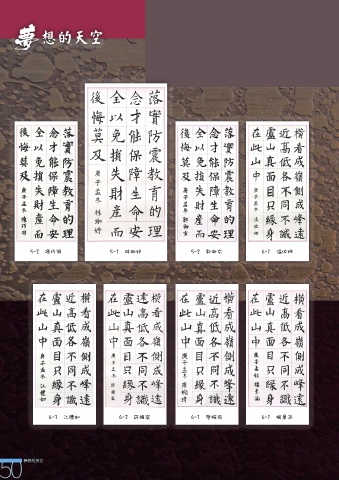 夢想的天空
落實防震教育的理
念才能保障生命安
全以免損失財產而
後悔莫及
庚子孟冬
落實防震教育的理
念才能保障生命安
全以免損失財產而
後悔莫及
庚子孟冬 林
落實防震教育的理
念才能保障生命安
全以免損失財產而
後悔莫及
庚子孟冬
橫看成嶺側成峰遠
近高低各不同不識
廬山真面目只緣身
在此山中
庚子孟冬
5-2
5-1
5-2
6-2
橫看成嶺側成峰遠
近高低各不同不識
廬山真面目只緣身
在此山中
庚子孟冬
橫看成嶺側成峰
遠高低各不同不識
廬山真面目只緣身
在此山中
庚子孟冬
橫看成嶺側成峰遠
近高低各不同不識
廬山真面目只緣身
在此山中
庚子孟冬
橫看成嶺側成峰遠
近高低各不同不識
廬山真面目只緣身
在此山中
6-1
6-2
6-1
6-2
50
夢想的天空